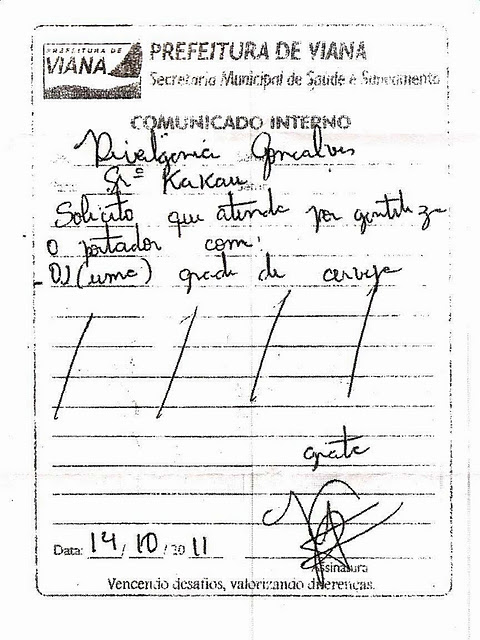 PREFEITURA DE
VIANA
PREFEITURA DE VIANA
Secretaria Municipal de Saúde e Saneamento
COMUNICADO INTERNO
Gonçalves
Srª Kakau
Solicito que atenda por gentileza
O portador com:
01 (uma) grade de cerveja
grata
Data: 14 / 10 / 2011
Assinatura
Vencendo desafios, valorizando diferenças.